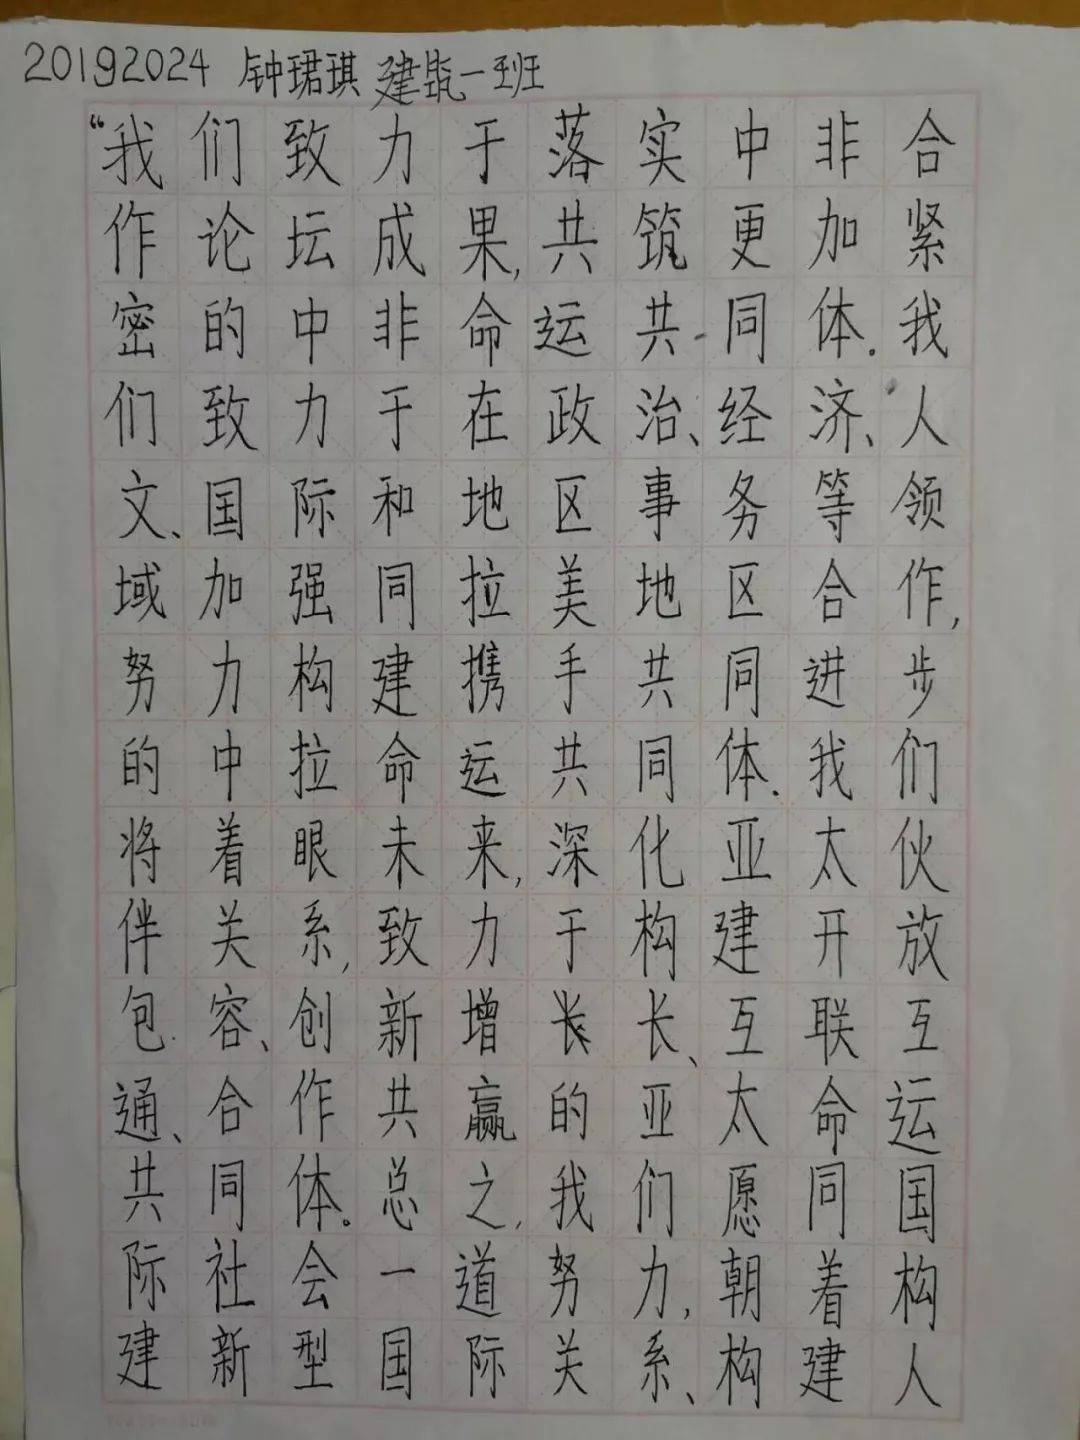 20192024 钟珺琪 建筑一班
“我们致力于落实中非合
作论坛成果,共筑更加紧
密的中非命运共同体.我
们致力于在政治、经济、人
文、国际和地区事务等领
域加强同拉美地区合作,
努力构建携手共同进步
的中拉命运共同体.我们
将着眼未来,深化亚太伙
伴关系,致力于构建开放
包容、创新增长长、互联互
通、合作共赢的亚太命运
共同体。总之,我们愿同国
际社会一道努力,朝着构
建新型国际关系、构建人